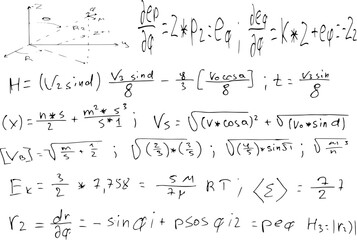 z
∂eρ/∂φ = 2*ρ₂ = eφ ; ∂eφ/∂φ = k*2 + eφ = -2₂
H = (V₂ sinα) V₃ sinα/8 - 8/3 - [V₀cosα/8] ; t = V₃sin/8
(x) = n*s/2 + m²*s³/s*1 ; Vs = √(v*cosα)² + √(v₀*sinα)
[V_B] = √m/s + 1/2 ; √(2/3)*(3/5) ; √(4/5)*sin51 ; √m/n³
Eк = 3/2 * 7,758 = 5M/7μ RT ; ⟨Ɛ⟩ = 7/2 7
r₂ = dr/∂φ = -sinφi + ρsosφi2 = ρeφ H₃=|r₃)|